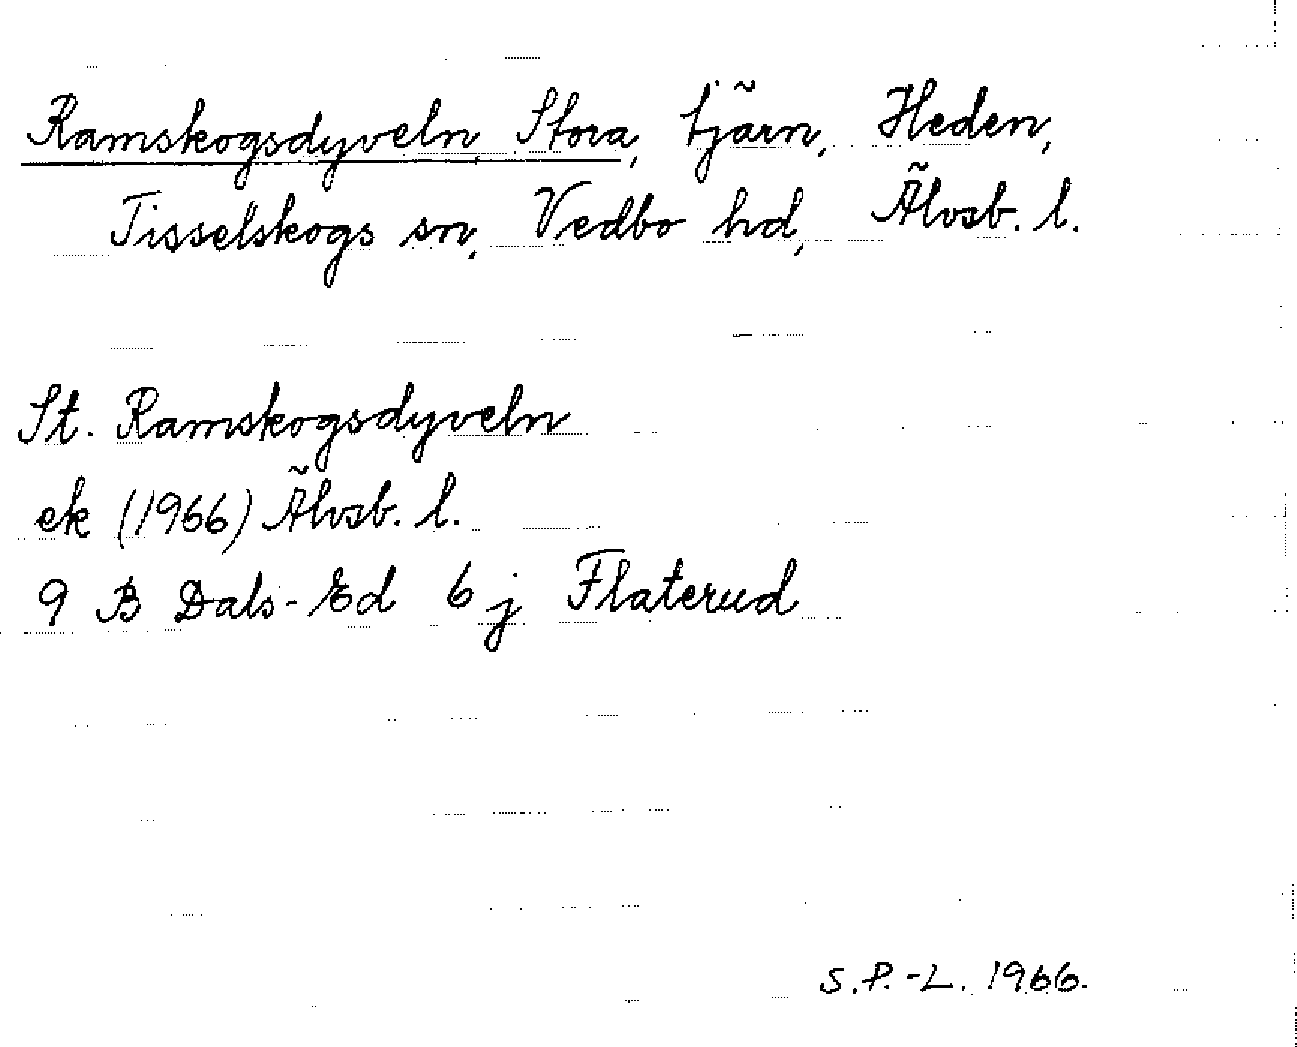 Ramskogsdyveln, Stora, tjärn, Heden,
Tisselskogs sn, Vedbo hd, Älvsb. l.
St. Ramskogsdyveln
ek (1966) Älvsb. l.
9 B Dals-Ed 6 j Flaterud
S.P.-L. 1966.